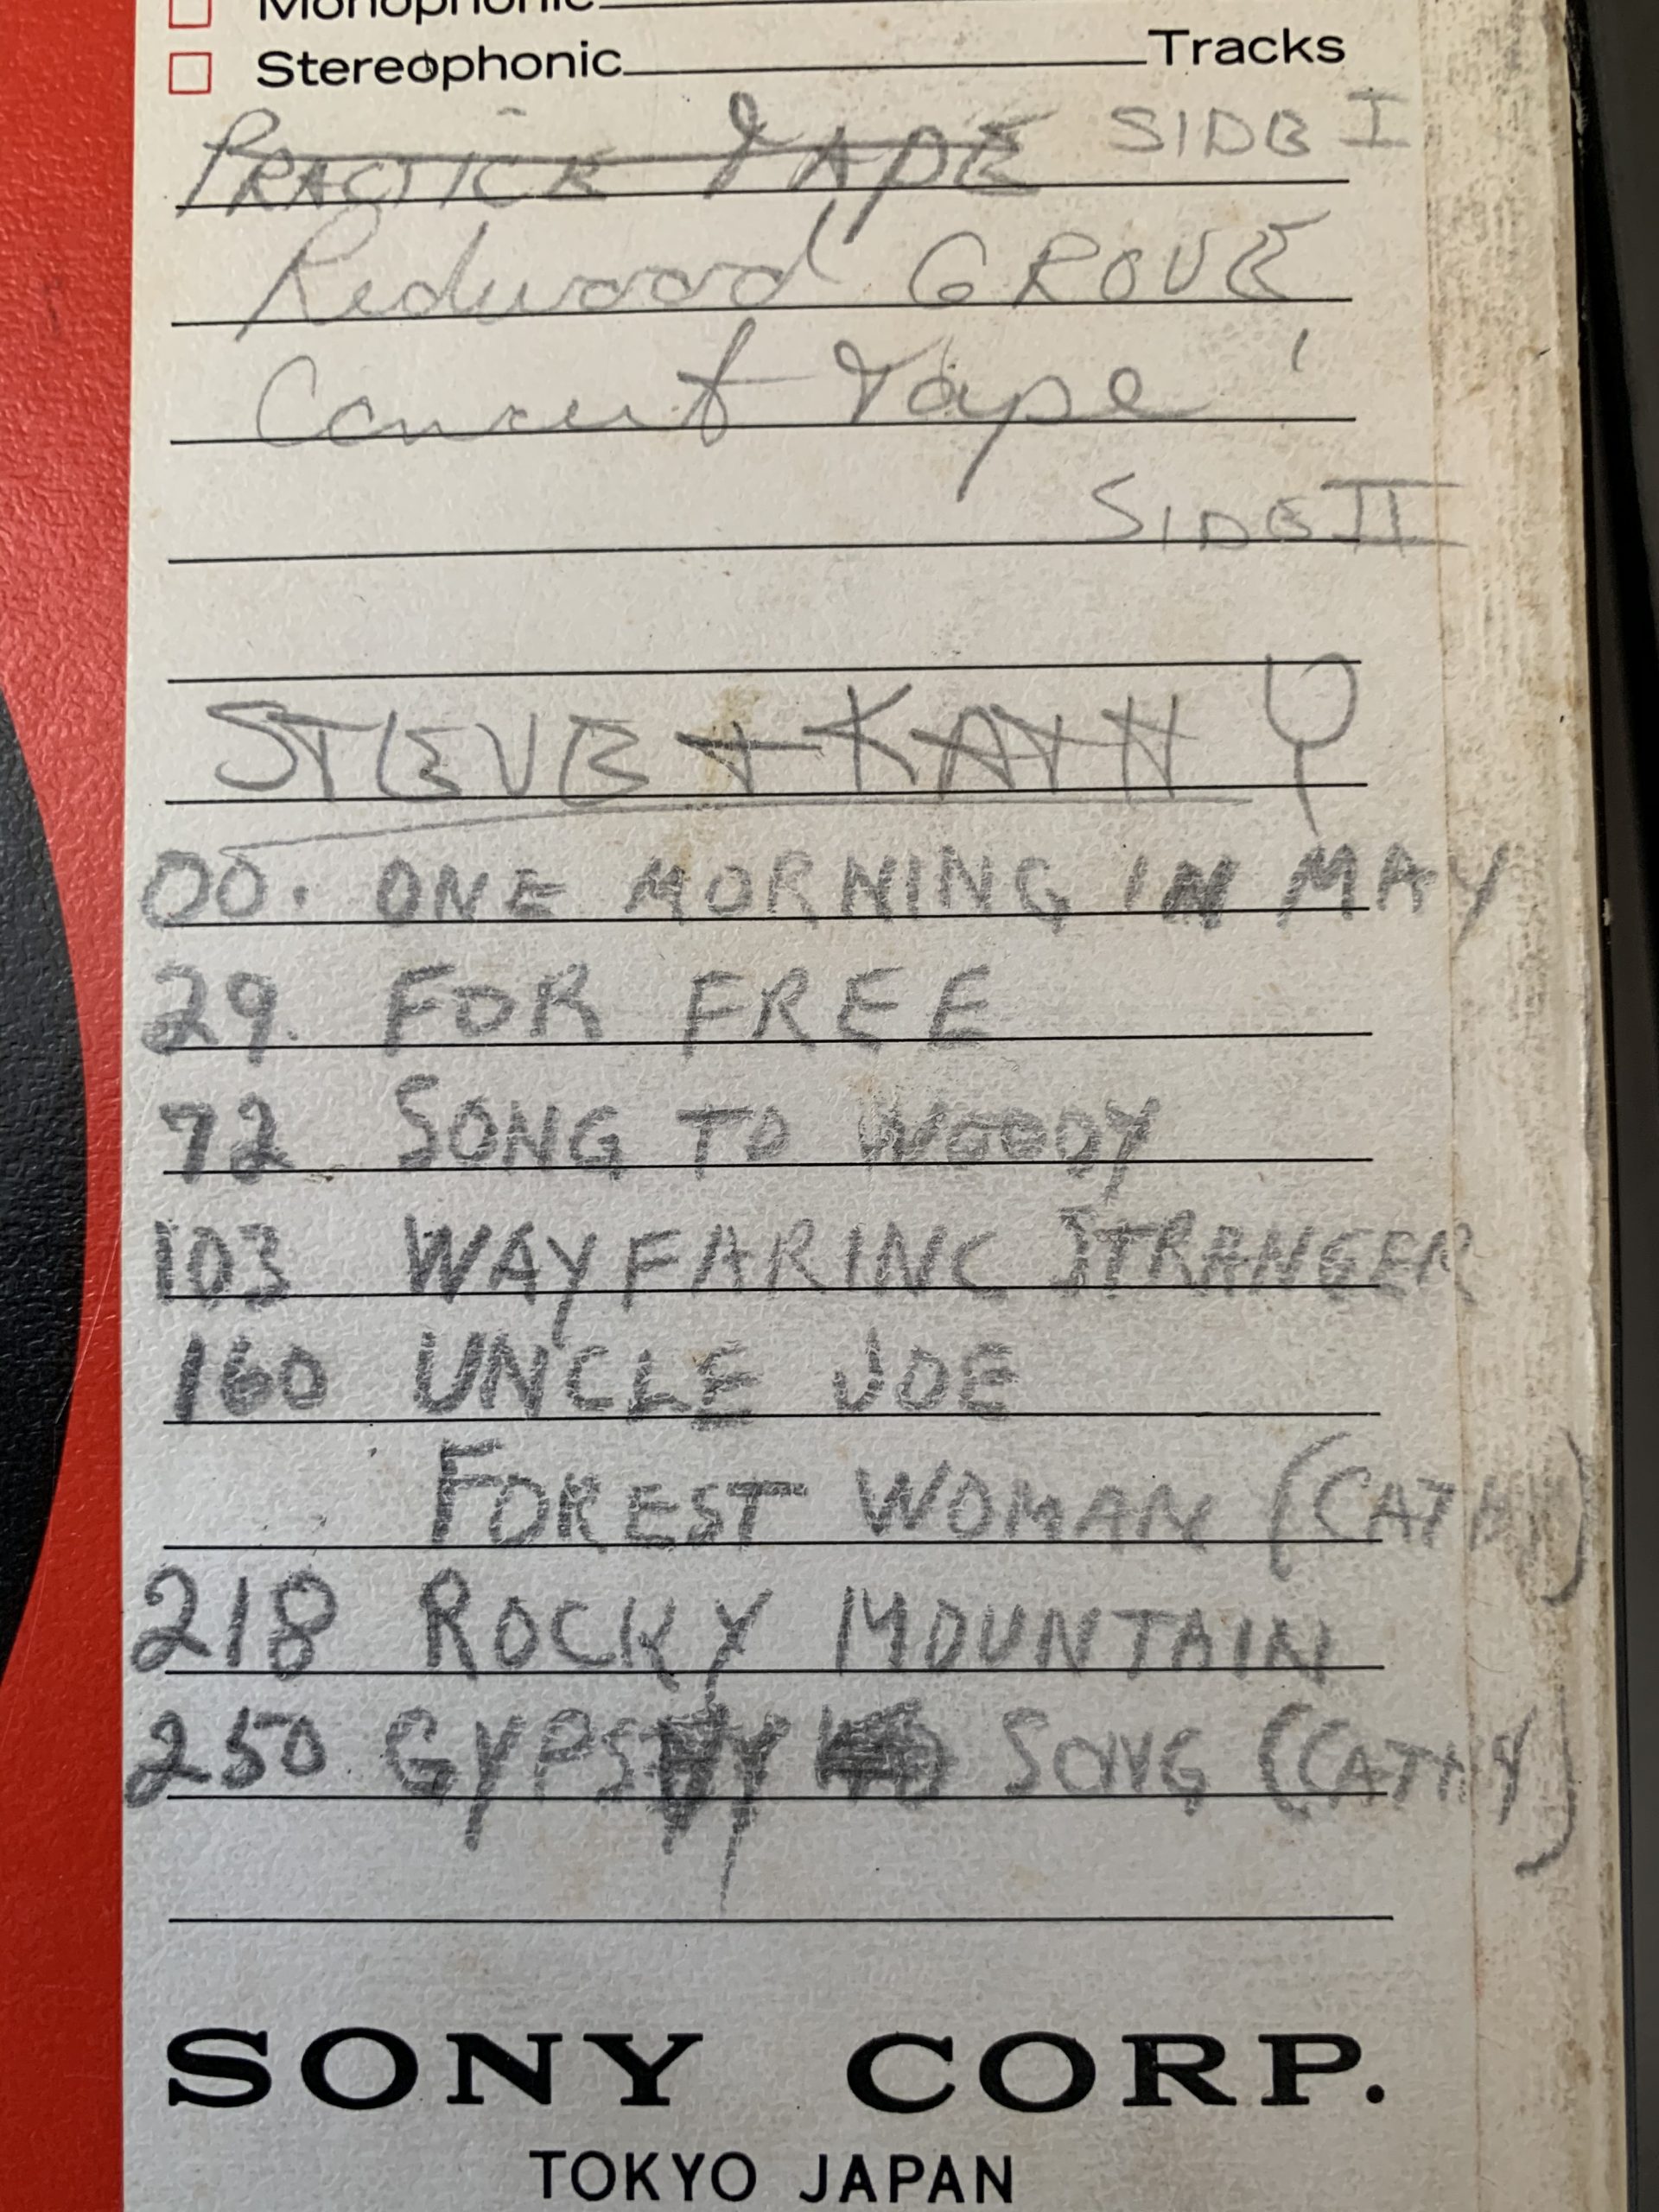 Monophonic
Stereophonic Tracks
PRACTICE TAPE SIDE I
Redwood GROVE
Concert Tape
SIDE II
STEVE + KATHY
00. ONE MORNING IN MAY
29. FOR FREE
72 SONG TO WOODY
103 WAYFARING STRANGER
160 UNCLE JOE
FOREST WOMAN (CATHY)
218 ROCKY MOUNTAIN
250 GYPSY SONG (CATHY)
SONY CORP.
TOKYO JAPAN